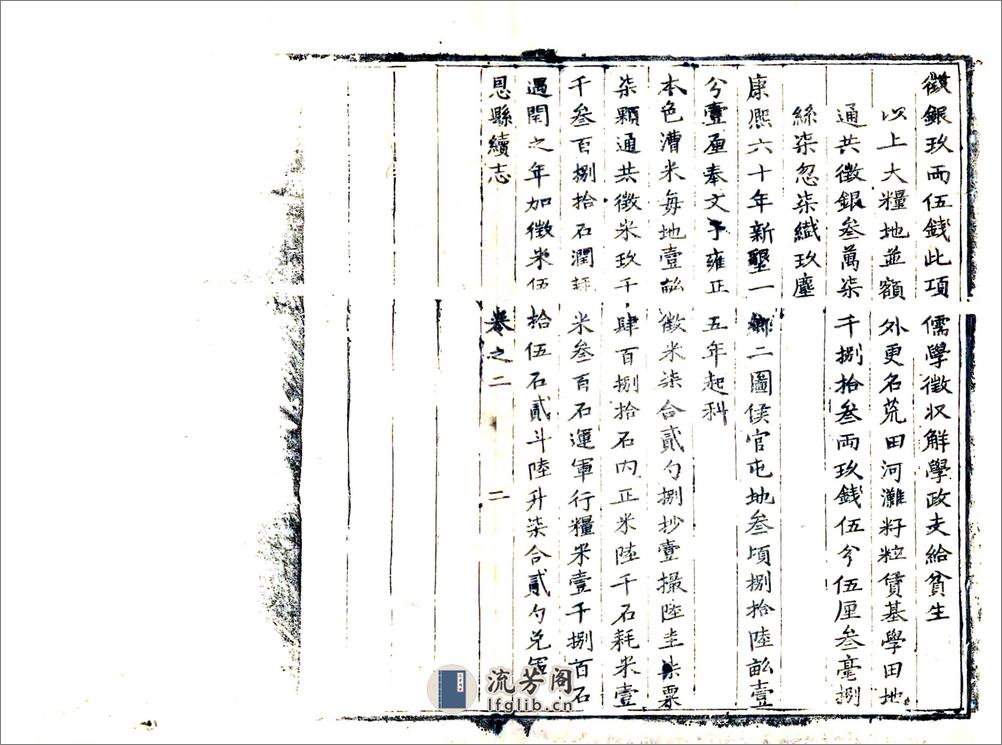 徵銀玖兩伍錢此項儒學徵收解學政支給貧生
以上大糧地並額外更名荒田河灘籽粒賃基學田地
通共徵銀叁萬柒千捌拾叁兩玖錢伍分伍厘叁毫捌
絲柒忽柒纖玖塵
康熙六十年新墾一鄉二圖侯官屯地叁頃捌拾陸畝壹
分壹厘奉文于雍正五年起科
本色漕米每地壹畝徵米柒合貳勺捌抄壹撮陸圭柒粟
柒顆通共徵米玖千肆百捌拾石內正米陸千石耗米壹
千叁百捌拾石潤耗米叁百石運軍行糧米壹千捌百石
遇閏之年加徵米伍拾伍石貳斗陸升柒合貳勺兌軍
恩縣續志 卷之二 二
流芳阁
lfglib.cn